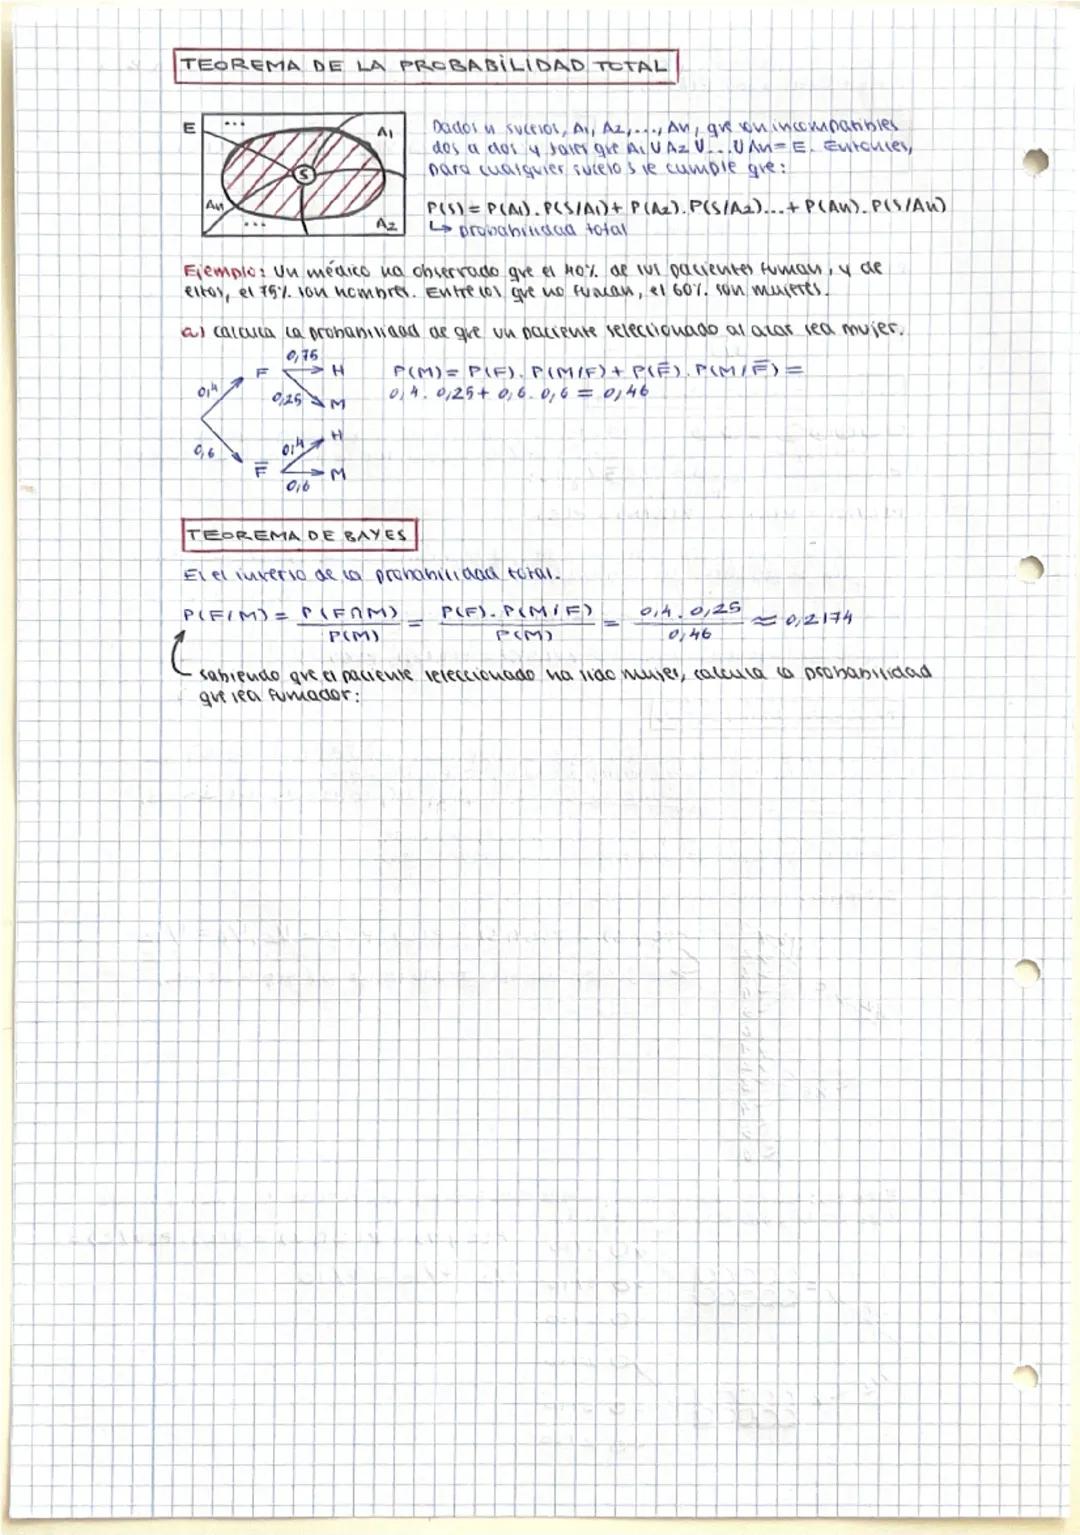 TEOREMA DE LA PROBABILIDAD TOTAL
E
...
A1
S
An
...
A2
Dados n sucesos, A1, A2, ..., An, que son incompatibles
dos a dos y tales que A1 U A2 U ... U An = E. Entonces,
para cualquier suceso S se cumple que:
P(S) = P(A1). P(S/A1) + P(A2). P(S/A2)...+ P(An). P(S/An)
↳ probabilidad total
Ejemplo: Un médico ha observado que el 40% de sus pacientes fuman, y de
ellos, el 75% son hombres. Entre los que no fuman, el 60% son mujeres.
a) calcula la probabilidad de que un paciente seleccionado al azar sea mujer.
0,75
F H
0,4
0,25 M
0,6
0,4 H
F̅ M
0,6
P(M) = P(F). P(M/F) + P(F̅). P(M/F̅) =
0,4. 0,25 + 0,6. 0,6 = 0,46
TEOREMA DE BAYES
Es el inverso de la probabilidad total.
P(F/M) = P(F∩M) / P(M) = P(F). P(M/F) / P(M) = 0,4. 0,25 / 0,46 ≈ 0,2174
sabiendo que el paciente seleccionado ha sido mujer, calcula la probabilidad
que sea fumador: